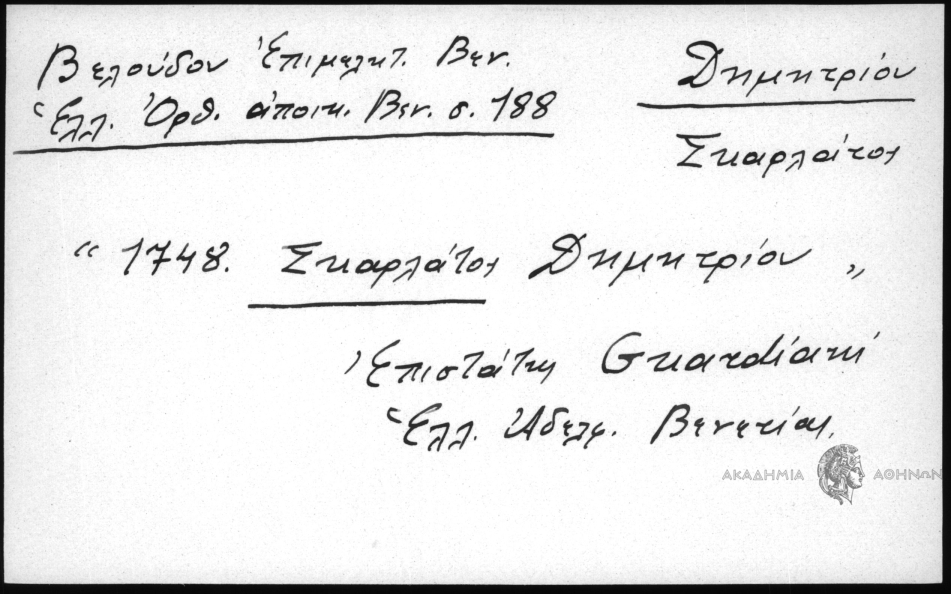 Βελούδου Ἐπιμελητ. Βεν.
Ἑλλ. Ὀρθ. ἀποικ. Βεν. σ. 188
Δημητρίου
Σκαρλάτος
“ 1748. Σκαρλάτος Δημητρίου „
Ἐπιστάτης Guardiani
Ἑλλ. Ἀδελφ. Βενετίας.
ΑΚΑΔΗΜΙΑ ΑΘΗΝΩΝ